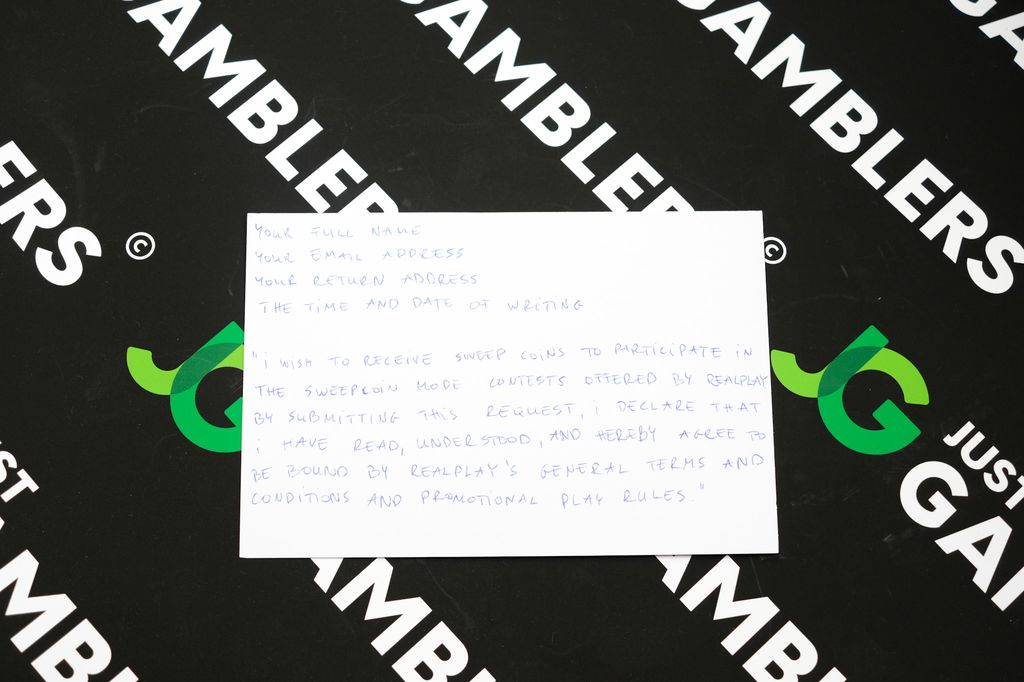 GAMBLERS
GAMBLERS
GAMBLERS
ERS
©
©
YOUR FULL NAME
YOUR EMAIL ADDRESS
YOUR RETURN ADDRESS
THE TIME AND DATE OF WRITING
"I WISH TO RECEIVE SWEEP COINS TO PARTICIPATE IN
THE SWEEPCOIN MODE CONTESTS OFFERED BY REALPLAY
BY SUBMITTING THIS REQUEST, I DECLARE THAT
I HAVE READ, UNDERSTOOD, AND HEREBY AGREE TO
BE BOUND BY REALPLAY'S GENERAL TERMS AND
CONDITIONS AND PROMOTIONAL PLAY RULES."
JG
JG
JUST
GA